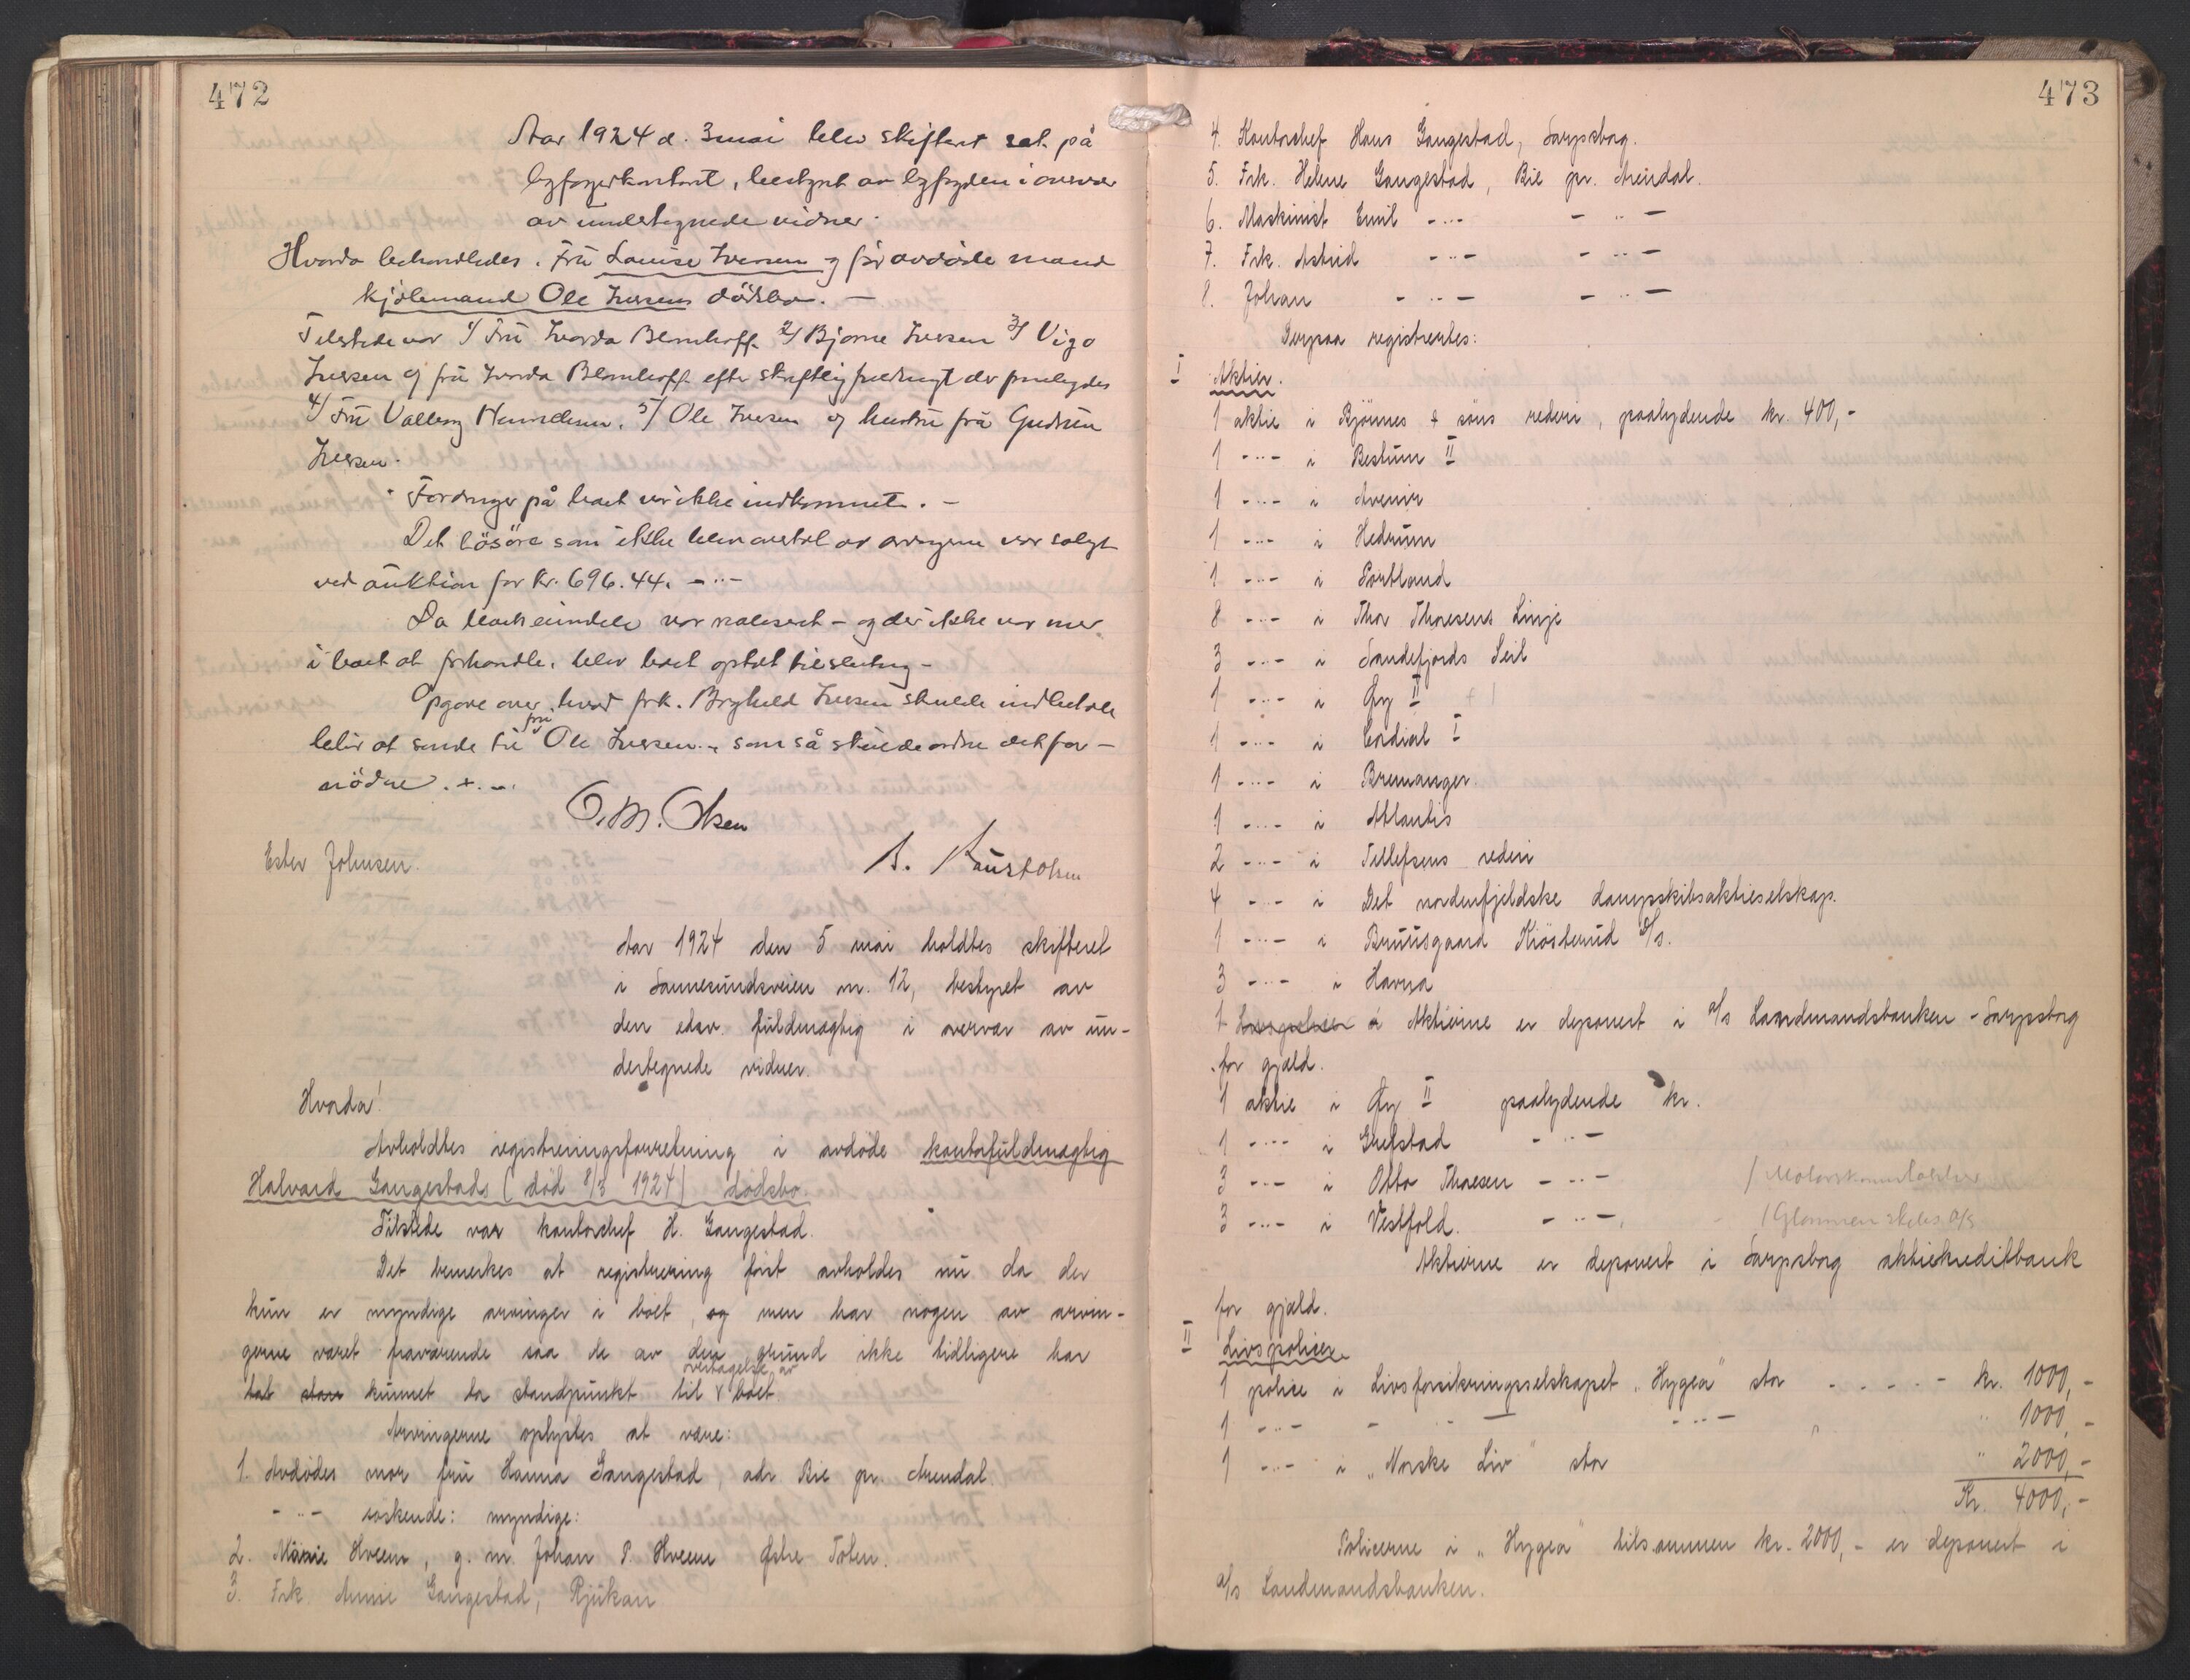 472
Aar 1924 d. 3 mai blev skifteret sat på
byfogerkontoret, bestyret av byfogden i overvær
av undertegnede vidner.
Hvorda behandledes. Fru Louise Iversen og før avdøde mand
kjølemand Ole Iversens dødsbo. —
Tilstede var 1/ Fru Blomhoff 2/ Bjarne Iversen 3/ Vigo
Iversen og fru Blomhoff efter skriftlig fuldmagt der fremlegdes
4/ Fru Valborg 5/ Ole Iversen og hustru fru Gudrun
Iversen.
Fordringer på boet var ikke indkommet. —
Det løsøre som ikke blev overtat av arvingerne var solgt
ved auktion for kr. 696.44. -"-
Da boets eiendele var realisert - og der ikke var mer
i boet at forhandle, blev boet optat til slutning -
Opgave over hvad frk. Borghild Iversen skulde indbetale
blir at sende til fru Ole Iversen - som så skulde ordne det for-
nødne.
O. M. Olsen
Ester Johnsen.
A.
Aar 1924 den 5 mai holdtes skifteret
i Sannesundsveien nr. 12, bestyret av
den edsv. fuldmægtig i overvær av un-
dertegnede vidner.
Hvorda!
Avholdtes registreringsforretning i avdøde kontorfuldmægtig
Halvard Gangestads (død 8/3 1924) dødsbo.
Tilstede var kontorchef H. Gangestad.
Det bemerkes at registrering først avholdes nu da der
kun er myndige arvinger i boet, og men har nogen av arvin-
gerne været fraværende saa de av den grund ikke tidligere har
tat stan kunnet ta standpunkt til overtagelse av boet.
Arvingerne oplystes at være:
1. Avdødes mor fru Hanna Gangestad, adr. Bie pr. Arendal.
- " - søskende: myndige:
2. Marie Hveem, g. m. Johan P. Hveem Østre Toten.
3. Frk. Annie Gangestad, Rjukan
473
4. Kontorchef Hans Gangestad, Sarpsborg.
5. Frk. Helene Gangestad, Bie pr. Arendal.
6. Maskinist Emil - " - - " -
7. Frk. Astrid - " - - " -
8. Johan - " - - " -
Derpaa registrertes:
I Aktier.
1 aktie i Bjønnes & søns rederi, paalydende kr. 400,-
1 -"- i Bestum II
1 -"- i Avenir
1 -"- i Hedrum
1 -"- i Portland
8 -"- i Thor Thoresens Linje
3 -"- i Sandefjords Seil
1 -"- i Gry II
1 -"- i Cordial I
1 -"- i Bremanger.
1 -"- i Atlantis
2 -"- i Tellefsens rederi
4 -"- i Det nordenfjeldske dampskibsaktieselskap.
1 -"- i Bruusgaard Kiøsterud A/s.
3 -"- i Havnja
1 Aktierne er deponert i a/s Landmandsbanken - Sarpsborg
for gjæld.
1 aktie i Gry II paalydende kr.
1 -"- i Grefstad - " -
3 -"- i Otto Thoresen - " -
3 -"- i Vestfold. - " - / Glommen skibs A/S
Aktierne er deponert i Sarpsborg aktiekreditbank
for gjæld.
II Livspoliser
1 police i Livsforsikringsselskapet "Hygea" stor - - - - kr. 1000,-
1 -"- - " - - " - " 1000,-
1 -"- i "Norske Liv" stor " 2000,-
Kr. 4000,-
Policerne i "Hygea" tilsammen kr. 2000,- er deponert i
a/s Landmandsbanken.